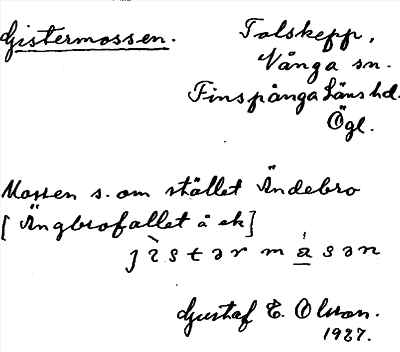 Gistermossen.
Tolskepp,
Vånga sn.
Finspånga Läns hd.
Ögl.
Mossen s. om stället Ändebro
[Ängbrofallet å ek]
Gustaf E. Olsson.
1927.